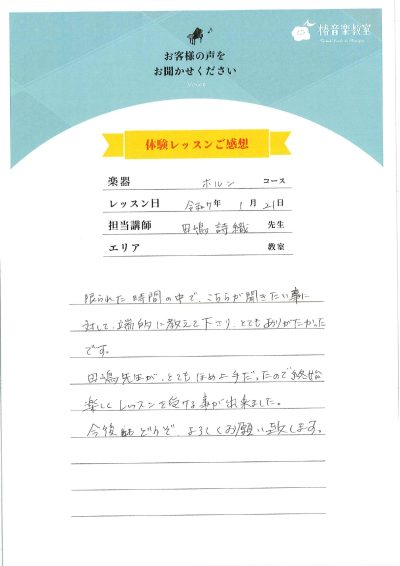 椿音楽教室
お客様の声を
お聞かせください
体験レッスンご感想
楽器 ホルン コース
レッスン日 令和7年 1月21日
担当講師 田嶋 詩織 先生
エリア 教室
限られた時間の中で、こちらが聞きたい事に
対して、端的に教えて下さり、とてもありがたかった
です。
田嶋先生が、とてもほめ上手だったので終始
楽しくレッスンを受ける事が出来ました。
今後もどうぞ、よろしくお願い致します。